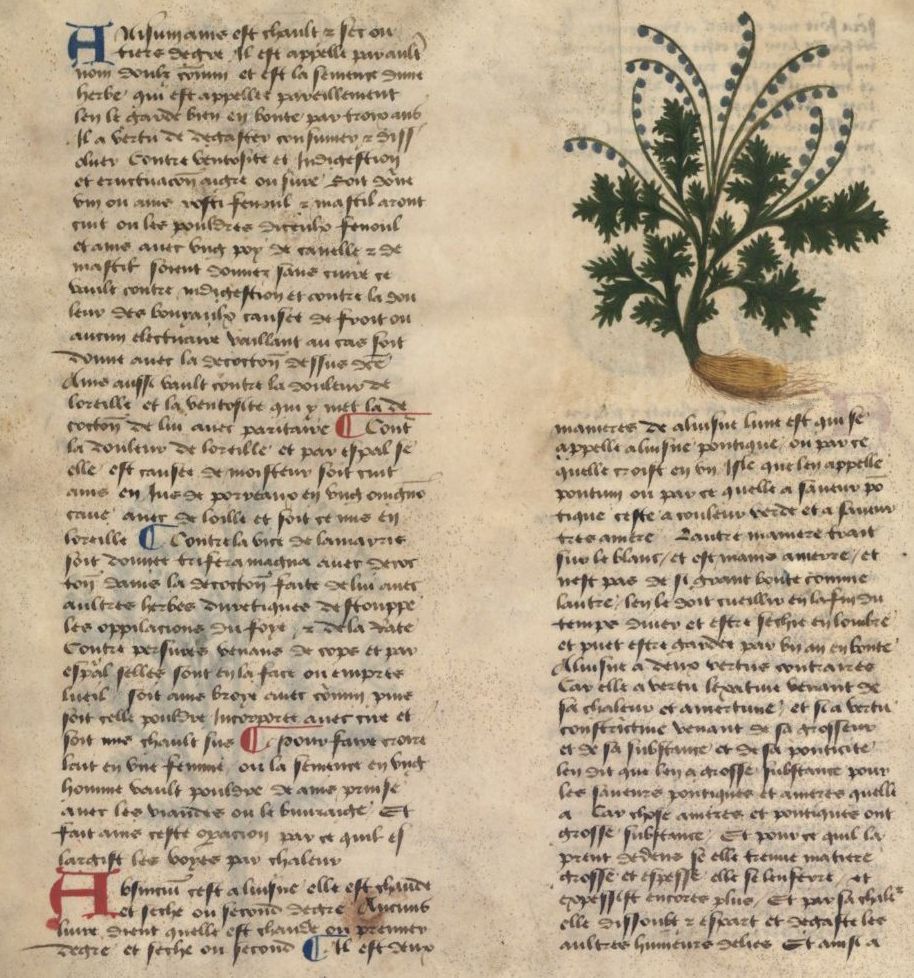 Anisum anis est chault & sec ou
tiers degre Il est appelle par aultre
nom doulz comin et est la semence dune
herbe qui est appellee pareillement
len le garde bien en bonte par troys ans
Il a vertu de degaster consumer & diss
oluer Contre ventosite et Indigestion
et eructuacion aigre ou sure Soit done
vin ou anis rosti fenoul & mastic aront
cuit ou les pouldres fenoul
et anis auec vng poy de canelle & de
mastic soient donnez ce
vault contre indigestion et contre la dou
leur des bouyaulx causee de froit ou
aucun electuaire vaillant au cas soit
donne auec la decoction dessus
Anis aussi vault contre la douleur de
loreille et la ventosite qui y met la de
coction de lui auec paritaire Cont
la douleur de loreille et par espal se
elle est causee de moisteur soit cuit
anis en Jus de en vng
caue auec de loille et soit ce mis en
loreille Contre la vice de lamarris
soit donnee trifera magna auec decoc
tion dans la decoction faite de lui auec
aultres herbes diuretiques destouppe
les oppilacions du foye & de la rate
Contre persures venans de cops et par
espal selles sont en la face ou empres
lueil soit anis broye auec comin puis
soit celle pouldre Incorporee auec cire et
soit mis chault sus Pour faire croire
lait en vne femme ou la semence en vng
homme vault pouldre de anis prinse
auec les viandes ou le buuraige Et
fait anis ceste opacion par ce quil es
largist les voyes par chaleur
Absincium cest aluisne elle est chaude
et seche ou second degre Aucuns
liure dient quelle est chaude ou premier
degre et seche ou second Il est deux
manieres de aluisne lune est qui se
appelle aluisne pontique ou par ce
quelle croist en vn Isle que len appelle
pontum ou par ce quelle a saueur po
tique ceste a couleur verde et a saueur
tres amere Lautre maniere trait
sur le blanc / et est mains amere / et
nest pas de si grant bonte comme
lautre / len le doit cueillir en la fin du
temps diuer et estre sechie en lombre
et puet estre gardee par vn an en bonte
Aluisne a deux vertus contraires
Car elle a vertu lexatiue venant de
sa chaleur et amertume / et si a vertu
constrictiue venant de sa grosseur
et de sa substance et de sa ponticite
len dit que len a grosse substance pour
les saueurs pontiques et ameres quelle
a Car chose ameres et pontiques ont
grosse substance / Et pour ce quil la
prent dedens se elle treuue matiere
grosse et espesse elle se lenserre / et
expessist encores plus / Et par sa chaleur
elle dissoult & espart et degaste les
aultres humeurs delies Et ainsi a